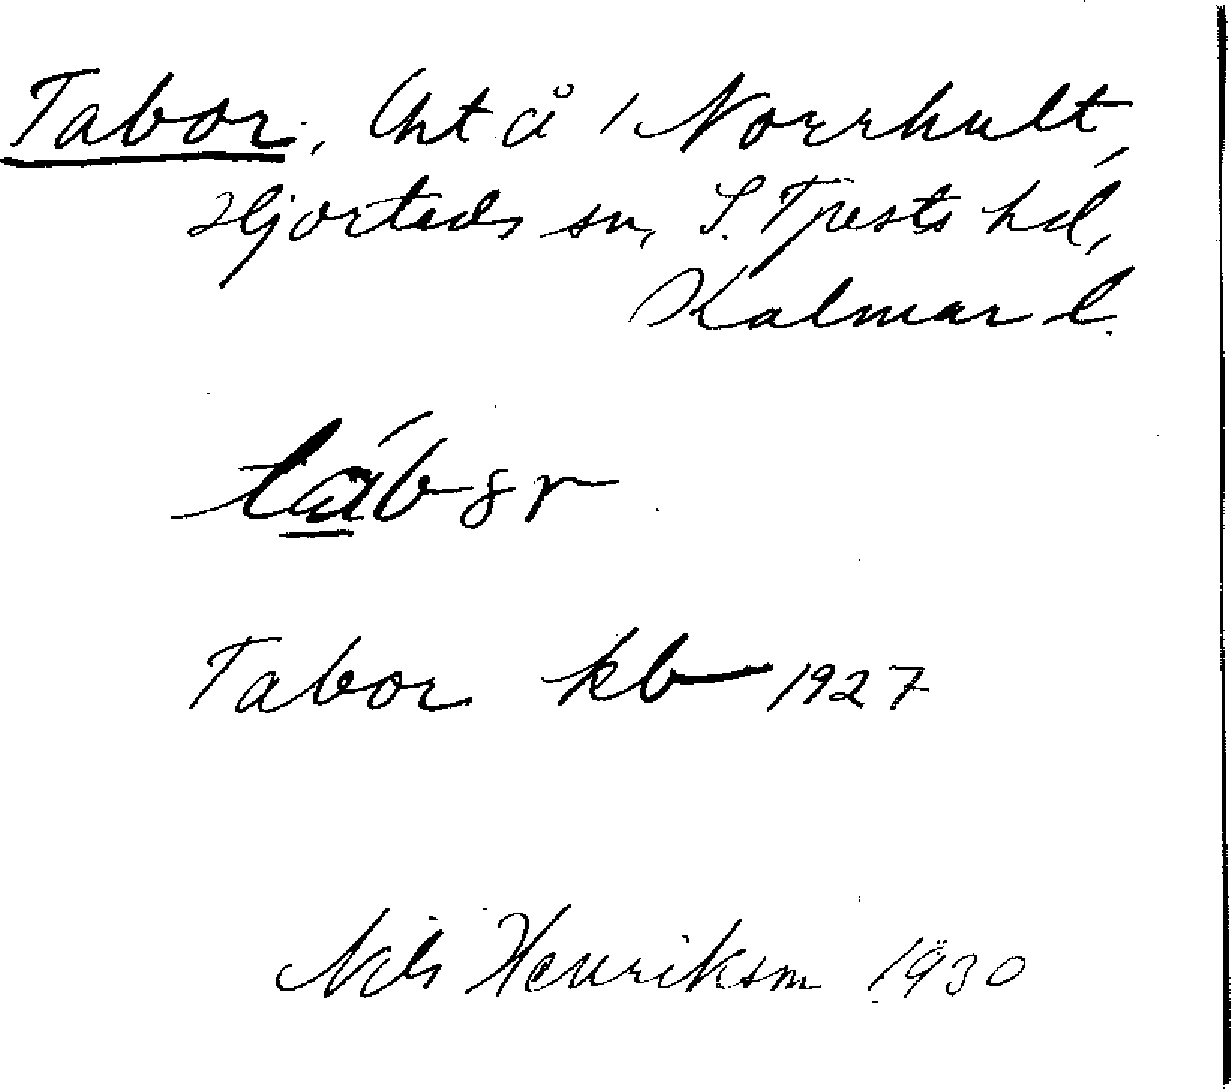 Tabor, lht å 1 Norrhult,
Hjorteds sn, S. Tjusts hd,
Kalmar l.
tábər
Tabor kb 1927
Nils Henrikson 1930